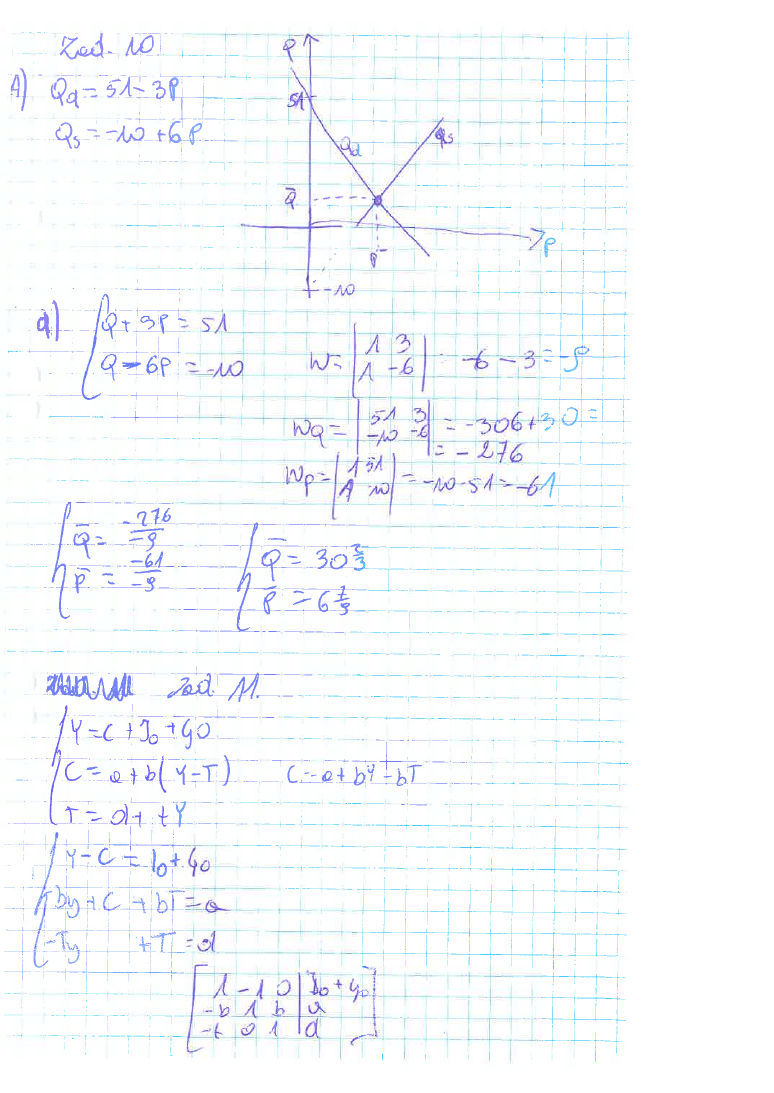 Zad. 10
A) Qd = 51 - 3P
Qs = -10 + 6P
Q
51
Qd
Qs
Q̄
P
P̄
-10
a) Q + 3P = 51
Q - 6P = -10
W = | 1 3 | -6 - 3 = -9
| 1 -6 |
WQ = | 51 3 | = -306 + 30 =
| -10 -6 | = -276
Wp = | 1 51 | = -10 - 51 = -61
| 1 -10 |
Q̄ = -276/-9
P̄ = -61/-9
Q̄ = 30 2/3
P̄ = 6 7/9
Zad 11.
Y = C + I0 + G0
C = a + b(Y - T) C = a + bY - bT
T = d + tY
Y - C = I0 + G0
-by + C + bT = a
-Ty + T = d
[ 1 -1 0 | I0 + G0 ]
-b 1 b | a
-t 0 1 | d